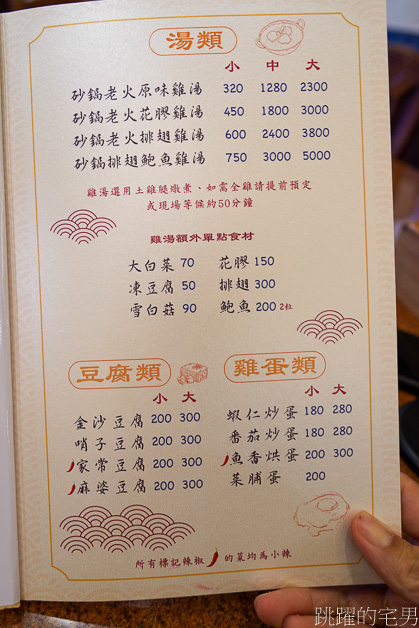 湯類
小 中 大
砂鍋老火原味雞湯 320 1280 2300
砂鍋老火花膠雞湯 450 1800 3000
砂鍋老火排翅雞湯 600 2400 3800
砂鍋排翅鮑魚雞湯 750 3000 5000
雞湯選用土雞腿燉煮、如需全雞請提前預定
或現場等候約50分鐘
雞湯額外單點食材
大白菜 70 花膠 150
凍豆腐 50 排翅 300
雪白菇 90 鮑魚 200 2粒
豆腐類
小 大
金沙豆腐 200 300
哨子豆腐 200 300
家常豆腐 200 300
麻婆豆腐 200 300
雞蛋類
小 大
蝦仁炒蛋 180 280
番茄炒蛋 180 280
魚香烘蛋 200 300
菜脯蛋 200
所有標記辣椒 的菜均為小辣
跳躍的宅男